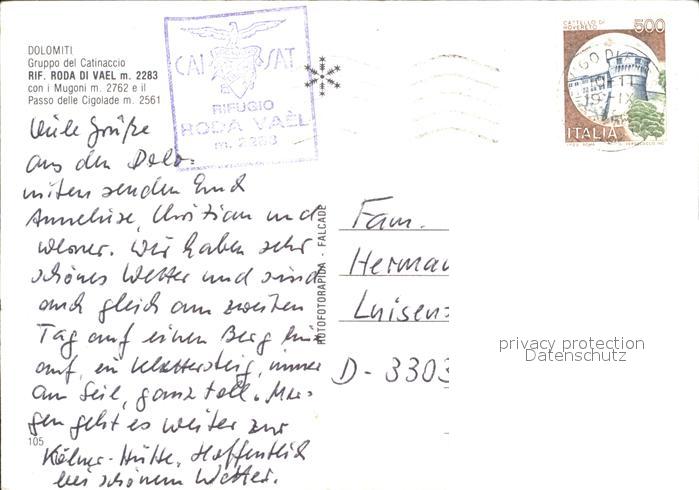 DOLOMITI
Gruppo del Catinaccio
RIF. RODA DI VAEL m. 2283
con i Mugoni m. 2762 e il
Passo delle Cigolade m. 2561
CAI SAT
RIFUGIO
RODA VAÈL
m. 2283
CASTELLO DI
ROVERETO
500
ITALIA
Viele Grüße
aus den Dolo-
miten senden Euch
Anneliese, Christian und
Werner. Wir haben sehr
schönes Wetter und sind
auch gleich am zweiten
Tag auf einen Berg hin-
auf, ein Klettersteig, immer
am Seil, ganz toll. Mor-
gen geht es weiter zur
Kölner-Hütte. Hoffentlich
bei schönem Wetter.
105
ROTOFOTORAPIDA - FALCADE
Fam.
Herman
Luisens
D-3303
privacy protection
Datenschutz